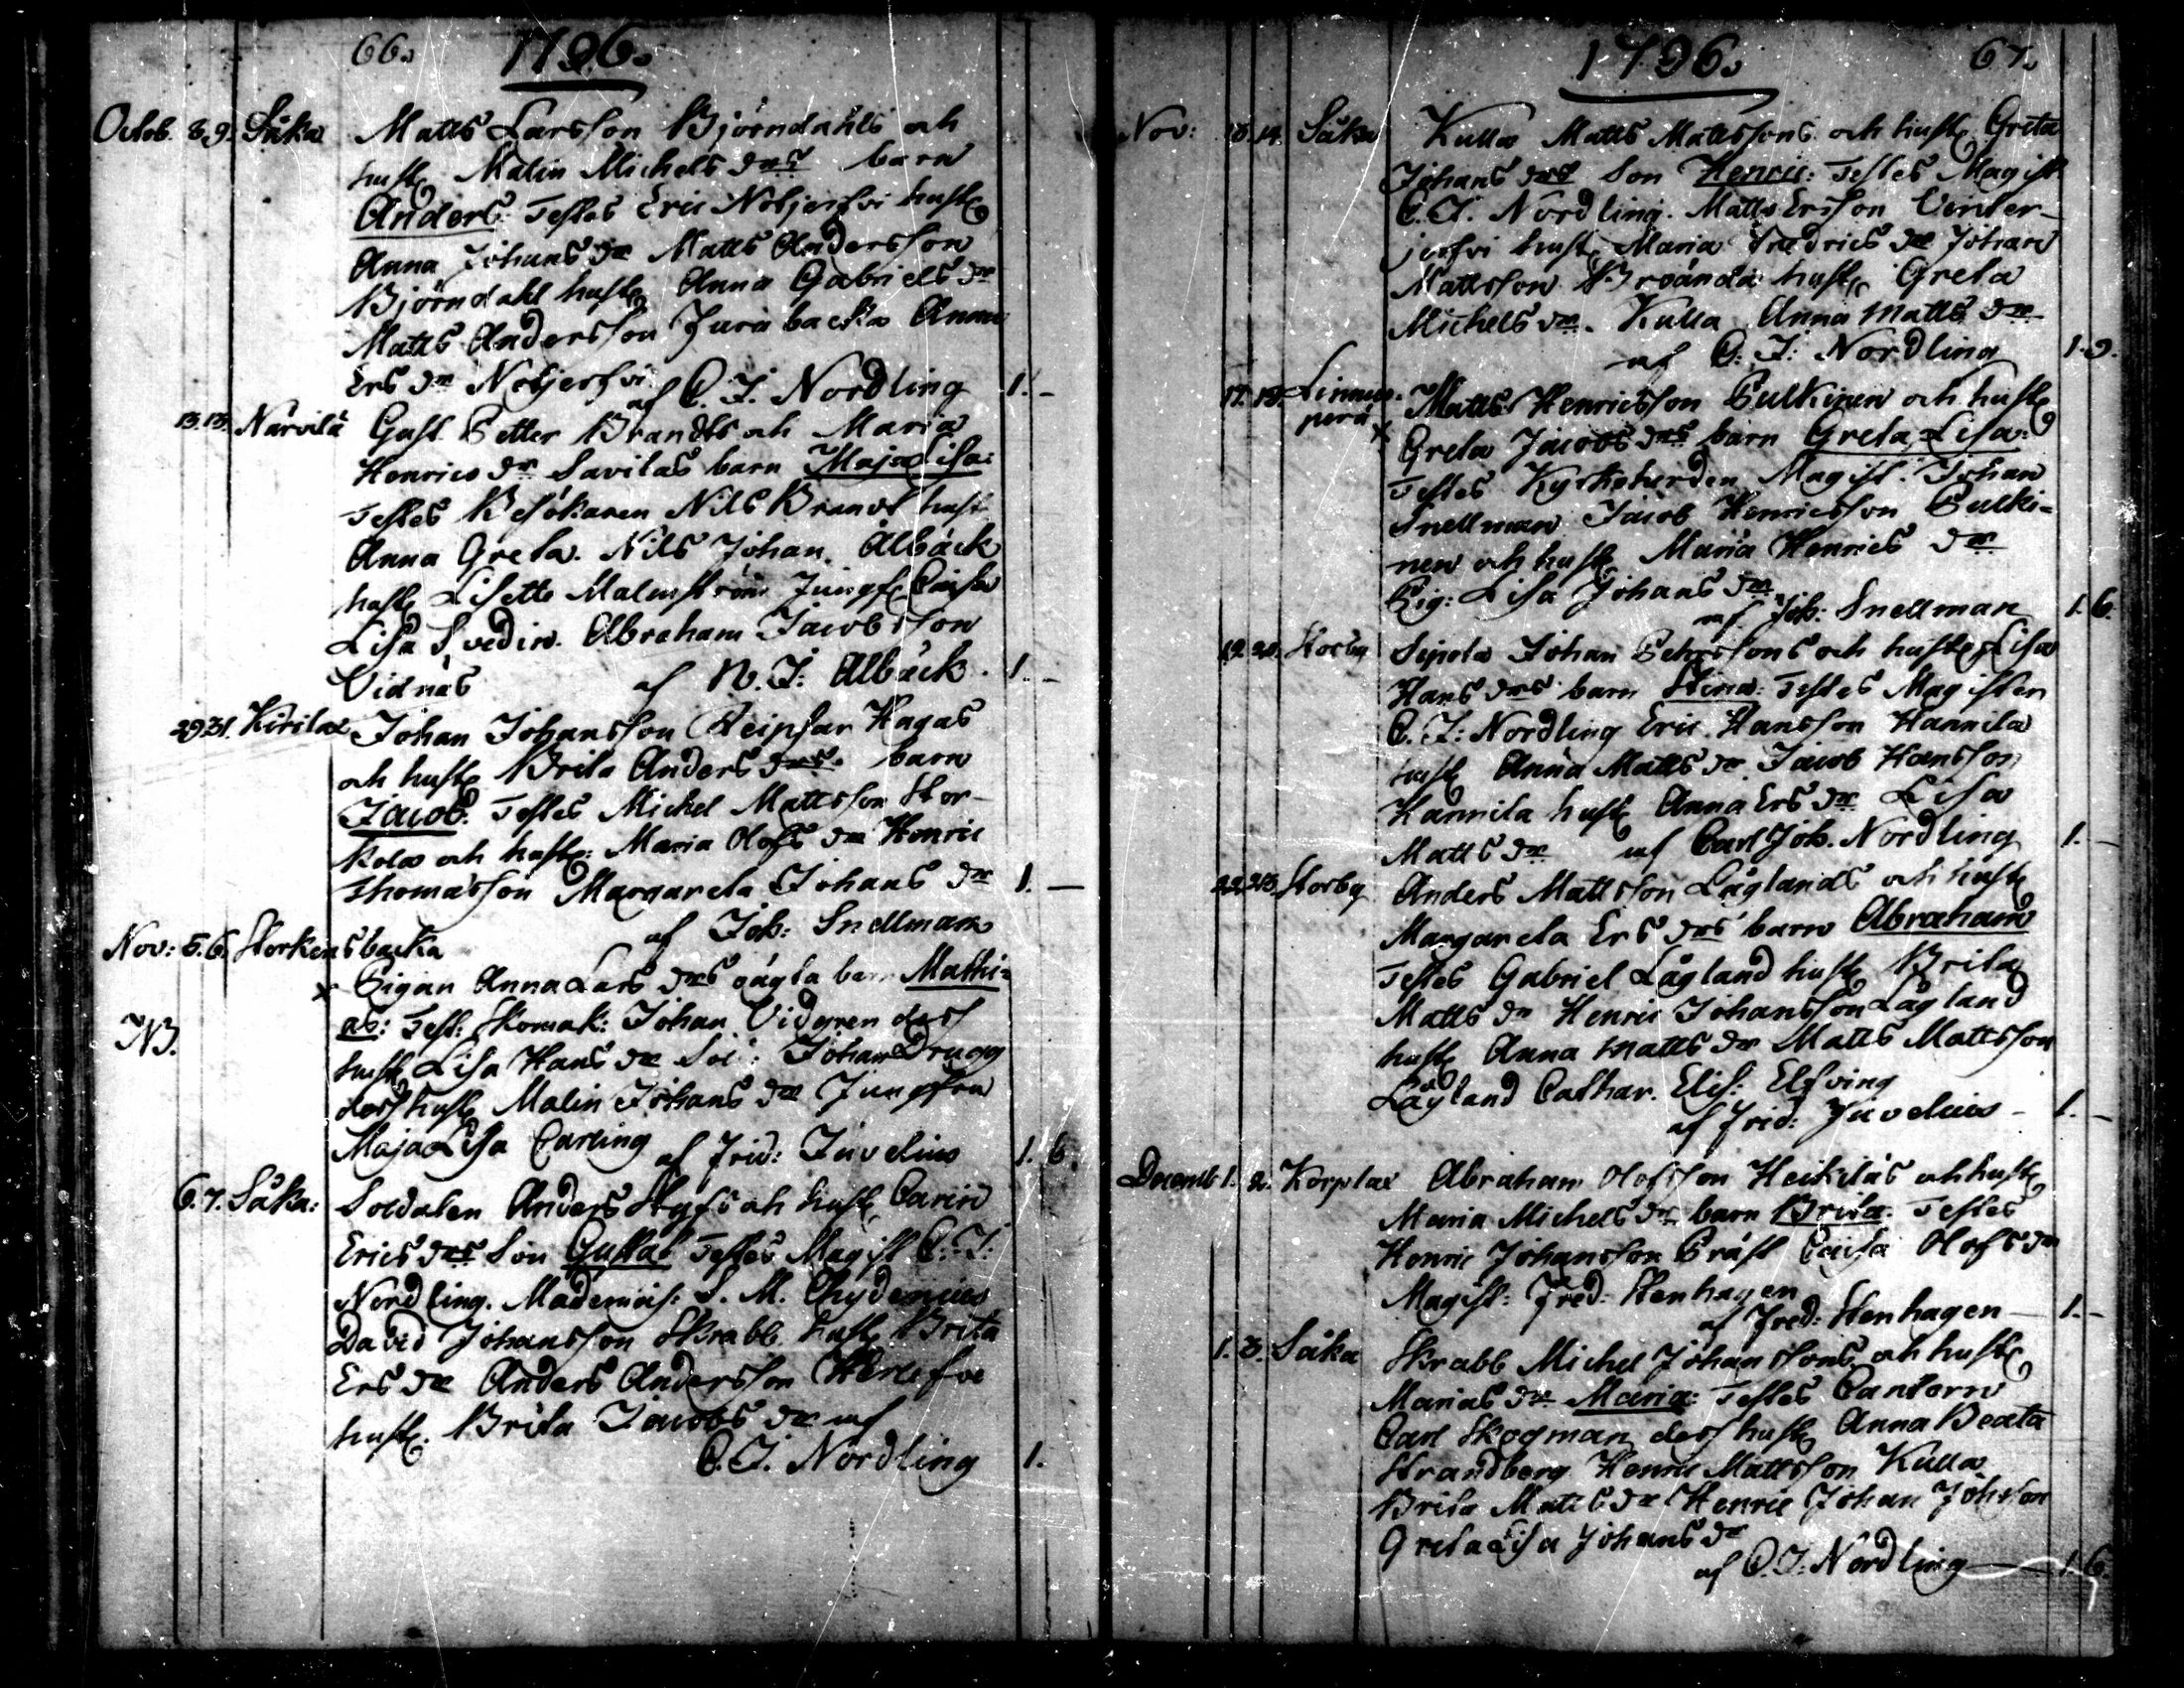 66. 1796.
Octob. 8. 9. Såka Matts Larsson Björndahls och
hust. Malin Michels drs barn
Anders: Testes Eric Notjerfvi hust.
Anna Johans dr Matts Andersson
Björndahl hust. Anna Gabriels dr
Matts Andersson Jurabacka Anna
Ers dr Notjerfvi af C. J. Nordling 1. -
13. 13. Narvilä Gust. Petter Brandts och Maria
Henrics dr Savilas barn Maja Lisa:
Testes Besökaren Nils Brandt hust
Anna Greta. Nils Johan Ahlbäck
hust. Lisette Malmström Jungf. Caisa
Lisa Svedin. Abraham Jacobsson
Vidnäs af N. J: Ahlbäck. 1. -
29 31. Kirilax Johan Johansson Hagas
och hust. Brita Anders drs barn
Jacob: Testes Michel Mattsson Stor-
kola och hust: Maria Olofs dr Henric
Thomasson Margareta Johans dr 1. -
af Joh: Snellman
Nov: 5. 6. Storkensbacka
x Pigan Anna Lars drs oägta barn Mathi-
as: Test: Skomak: Johan Vidgren dess
NB.
hust. Lisa Hans dr Sol: Johan Drugg
dess hust. Malin Johans dr Jungfru
Maja Lisa Carling af Frid: Juvelius 1. 6.
6. 7. Såka: Soldaten Anders Styfs och hust. Carin
Erics drs Son Gustaf Testes Magist C. J:
Nordling. Mademois: S. M. Chydenius
David Johansson Skrabb hust. Brita
Ers dr Anders Andersson
hust. Brita Jacobs dr af
C. J. Nordling 1.
1796. 67.
Nov: 13. 14. Såka Kulla Matts Mattssons och hust. Greta
Johans drs Son Henric: Testes Magist
C. J. Nordling. Matts Ersson Vinter-
jerfvi hust. Maria Fredrics dr Johan
Mattsson Broända hust. Greta
Michels dr. Kulla Anna Matts dr
af C: J: Nordling 1. 9.
17. 19. Linnus-
perä x Matts Henricsson Pulkinen och hust.
Greta Jacobs drs barn Greta Lisa:
Testes Kyrkoherden Magist. Johan
Snellman Jacob Henricsson Pulki-
nen och hust. Maria Henrics dr
Pig: Lisa Johans dr
af Joh: Snellman 1. 6.
19. 20. Storby Sipola Johan Pehrssons och hust. Lisa
Hans drs barn Stina: Testes Magistern
C. J: Nordling Eric Hansson Hannila
hust. Anna Matts dr Jacob Hansson
Hannila hust Anna Ers dr Lisa
Matts dr af Carl Joh. Nordling 1. -
22. 23. Storby Anders Mattsson Låglands och hust
Margareta Ers drs barn Abraham
Testes Gabriel Lågland hust. Brita
Matts dr Henric Johansson Lågland
hust. Anna Matts dr Matts Mattsson
Lågland Cathar. Elis: Elfving
af Frid: Juvelius - 1. -
Decemb 1. 2. Korplax Abraham Olofsson Heikiläs och hust.
Maria Michels drs barn Brita. Testes
Henric Johansson Präst Caisa Olofs dr
Magist: Fred: Stenhagen
af Fred: Stenhagen - 1. -
1. 3. Såka Skrabb Michel Johanssons och hust.
Marias dr Maria: Testes Cantorn
Carl Skogman dess hust. Anna Beata
Strandberg Henric Mattsson Kulla
Brita Matts dr Henric Johan Johsson
Greta Lisa Johans dr
af C. J: Nordling 1. 6.